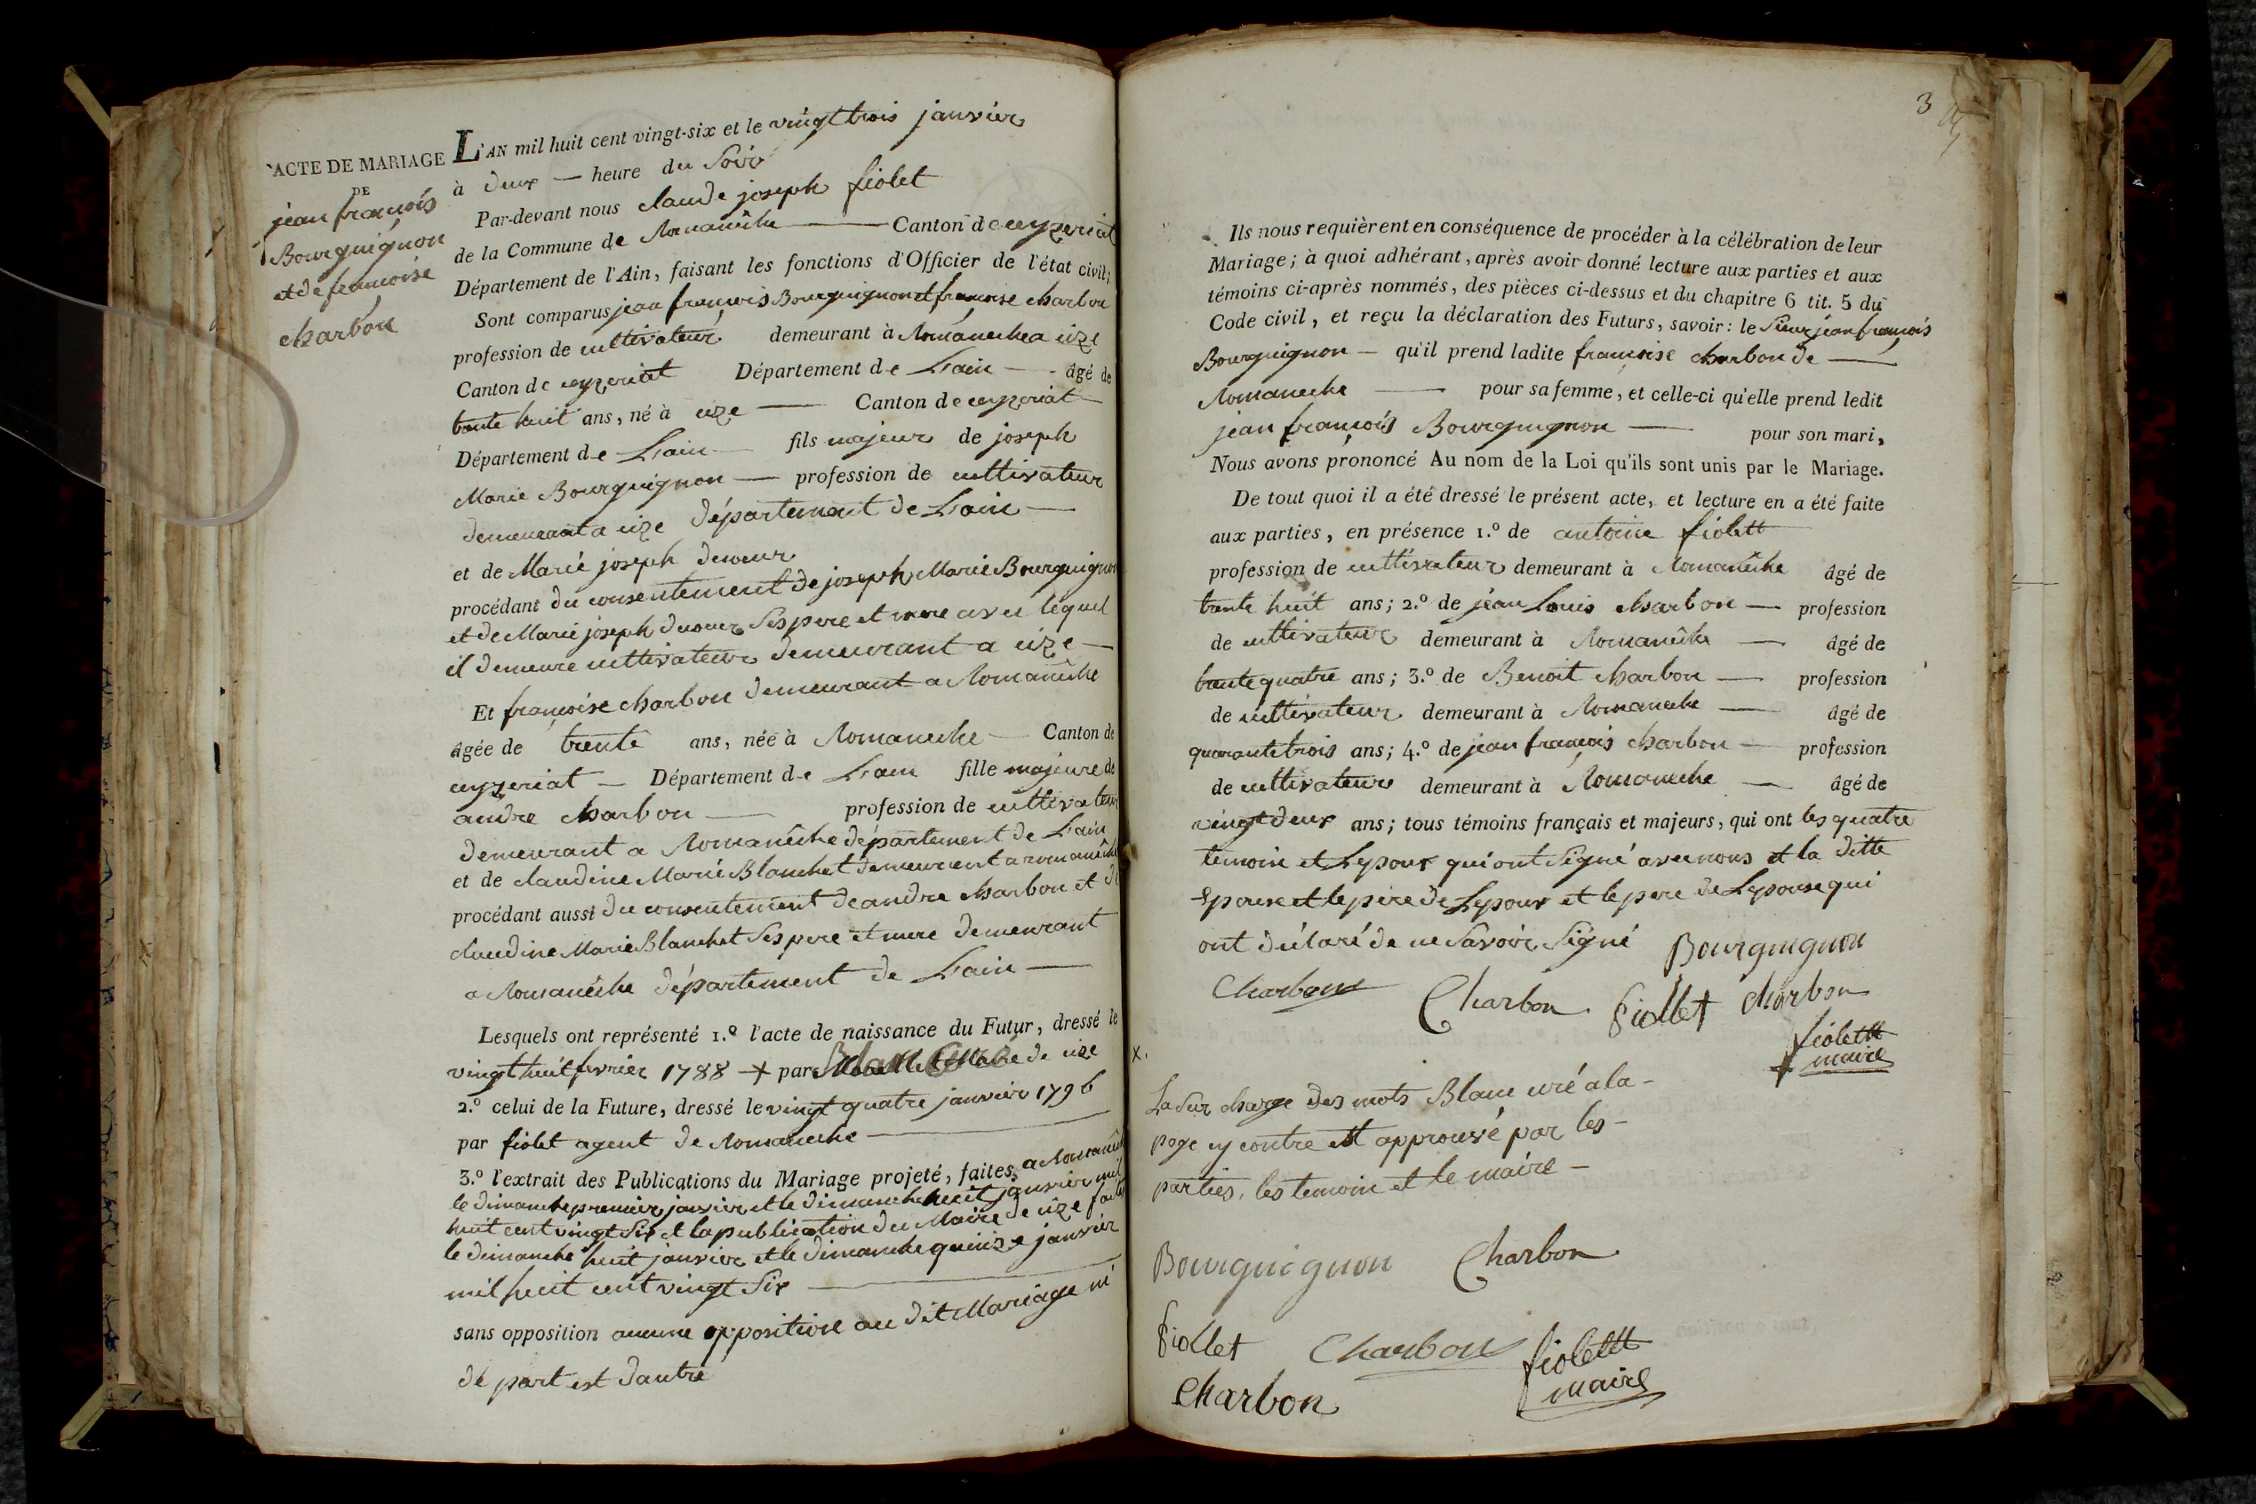 ACTE DE MARIAGE
DE
jean françois
Bourguignon
et de francoise
charbon
L'AN mil huit cent vingt-six et le vingt trois janvier
à deux — heure du Soir
Par-devant nous claude joseph fiolet
de la Commune de Romanêche — Canton de ceyzeriat
Département de l'Ain, faisant les fonctions d'Officier de l'état civil;
Sont comparus jean francois Bourguignon et francoise charbon
profession de cultivateur demeurant à Romaneche a cize
Canton de ceyzeriat Département de L'ain — âgé de
trente huit ans, né à cize — Canton de ceyzeriat —
Département de L'ain — fils majeur de joseph
Marie Bourguignon — profession de cultivateur
demeurant a cize département de L'ain —
et de Marie joseph
procédant du consentement de joseph Marie Bourguignon
et de Marie joseph Ses pere et mere avec lequel
il demeure cultivateur demeurant a cize —
Et françoise charbon demeurant a Romanêche
âgée de trente ans, née à Romaneche — Canton de
ceyzeriat — Département de L'ain fille majeure de
andre charbon — profession de cultivateur
demeurant a Romanêche département de L'ain
et de claudine Marie Blanchet demeurant a romanêche
procédant aussi du consentement de andre charbon et de
claudine Marie Blanchet Ses pere et mere demeurant
a Romanêche département de L'ain —
Lesquels ont représenté 1.º l'acte de naissance du Futur, dressé le
vingt huit fevrier 1788 + par Blanc Curé de cize
2.º celui de la Future, dressé le vingt quatre janvier 1796
par fiolet agent de Romaneche —
3.º l'extrait des Publications du Mariage projeté, faites a Romanêche
le dimanche premier janvier et le dimanche huit janvier mil
huit cent vingt Six et la publication du Maire de cize faites
le dimanche huit janvier et le dimanche quinze janvier
mil huit cent vingt Six —
sans opposition aucune opposition au dit Mariage ni
de part est dautre
3
Ils nous requièrent en conséquence de procéder à la célébration de leur
Mariage; à quoi adhérant, après avoir donné lecture aux parties et aux
témoins ci-après nommés, des pièces ci-dessus et du chapitre 6 tit. 5 du
Code civil, et reçu la déclaration des Futurs, savoir: le Sieur jean françois
Bourguignon — qu'il prend ladite francoise charbon de —
Romaneche — pour sa femme, et celle-ci qu'elle prend ledit
jean françois Bourguignon — pour son mari,
Nous avons prononcé Au nom de la Loi qu'ils sont unis par le Mariage.
De tout quoi il a été dressé le présent acte, et lecture en a été faite
aux parties, en présence 1.º de antoine fiolett
profession de cultivateur demeurant à Romanêche âgé de
trente huit ans; 2.º de jean Louis charbon — profession
de cultivateur demeurant à Romanêche — âgé de
trente quatre ans; 3.º de Benoit charbon — profession
de cultivateur demeurant à Romaneche — âgé de
quarante trois ans; 4.º de jean francois charbon — profession
de cultivateur demeurant à Romaneche — âgé de
vingt deux ans; tous témoins français et majeurs, qui ont les quatre
temoin et Lepoux qui ont Signé avec nous et la ditte
Epouse et le père de Lepoux et le pere de Lepouse qui
ont déclaré de ne Savoir Signé Bourguignon
Charbon Charbon fiollet charbon
fiolett
+ maire
x.
La Sur charge des mots Blanc curé a la —
page cy contre est approuvé par les —
parties, les temoin et le maire —
Bourguignon Charbon
fiollet Charbon fiolett
maire
Charbon